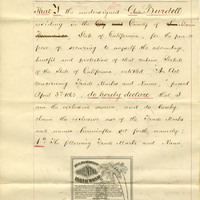 That I the undersigned Chas Burdell
residing in the City and County of San
Francisco State of California, for the pur-
pose of securing to myself the advantage,
benefit and protection of that certain Statute
of the State of California entitled "An Act
concerning Trade Marks and Names", passed
April 3rd 1863, do hereby declare that I
am the exclusive owner, and do hereby
claim the exclusive use of the Trade Marks
and names hereinafter set forth, namely:
1st The following Trade Marks and Name